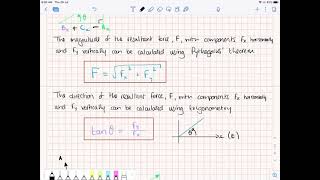 The magnitude of the resultant force, F, with components Fx horizontally
and Fy vertically can be calculated using Pythagoras' theorem
F = √(Fx² + Fy²)
The direction of the resultant force, F, with components Fx horizontally
and Fy vertically can be calculated using trigonometry
tanθ = Fy/Fx
θ
x (î)